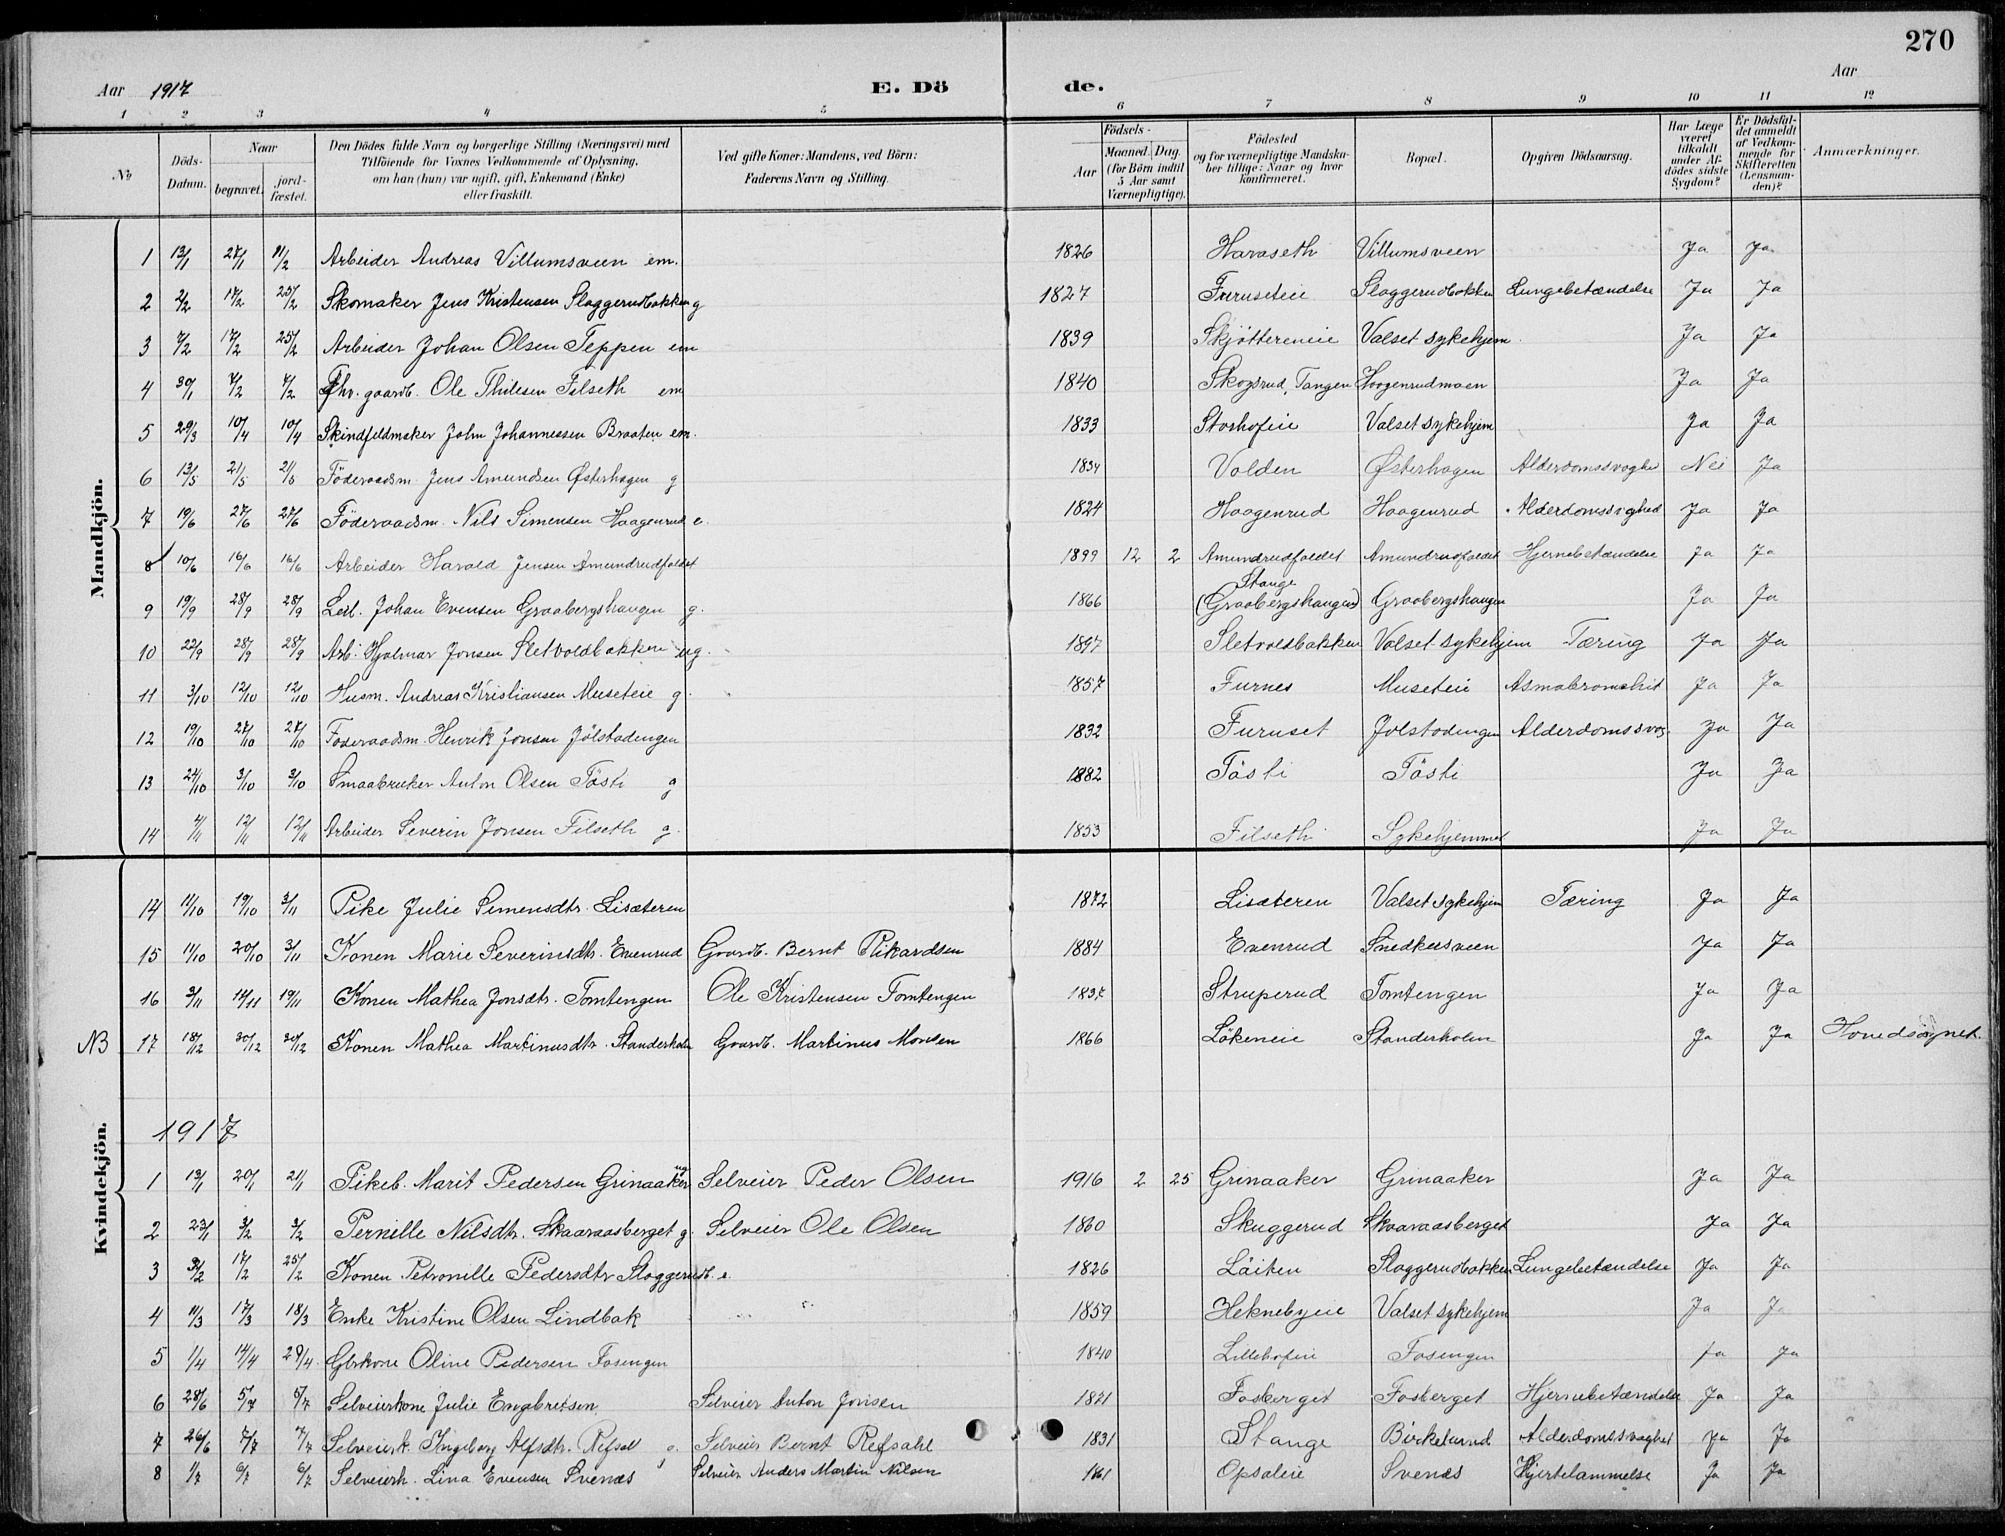 270
Aar 1917 E. Dö de. Aar
1 2 3 4 5 6 7 8 9 10 11 12
№
Döds-Datum.
Naar
begravet.
jord-fæstet.
Den Dödes fulde Navn og borgerlige Stilling (Næringsvei) med
Tilföiende for Voxnes Vedkommende af Oplysning,
om han (hun) var ugift, gift, Enkemand (Enke)
eller fraskilt.
Ved gifte Koner: Mandens, ved Börn:
Faderens Navn og Stilling.
Födsels-
Aar
Maaned. Dag.
(for Börn indtil
5 Aar samt
Værnepligtige).
Födested
og for værnepligtige Mandska-
ber tillige: Naar og hvor
konfirmeret.
Bopæl.
Opgiven Dödsaarsag.
Har Læge
været
tilkaldt
under Af-
dödes sidste
Sygdom?
Er Dödsfal-
det anmeldt
af Vedkom-
mende for
Skifteretten
(Lensman-
den)?
Anmærkninger.
Mandkjön.
1 13/1 27/1 11/2 Arbeider Andreas Villumsveen em. 1826 Haraseth Villumsveen Ja Ja
2 2/2 17/2 25/2 Skomaker Jens Kristensen Slaggerudbakken g 1827 Furuseteie Slaggerudbakken Lungebetændelse Ja Ja
3 7/2 17/2 25/2 Arbeider Johan Olsen Teppen em 1839 Skjøttereneie Valset sykehjem Ja Ja
4 30/1 7/2 7/2 Fhv. gaardb. Ole Thilesen Filseth em 1840 Skogsrud, Tangen Haagenrudmoen Ja Ja
5 29/3 10/4 10/4 Skindfeldmaker John Johannessen Braaten em. 1833 Storhofeie Valset sykehjem Ja Ja
6 13/5 21/5 21/5 Föderaadsm. Jens Amundsen Østerhagen g 1834 Volden Østerhagen Alderdomssvaghe Nei Ja
7 19/6 27/6 27/6 Föderaadsm. Nils Simensen Haagenrud e. 1824 Haagenrud Haagenrud Alderdomssvaghed Ja Ja
8 10/6 16/6 16/6 Arbeider Harald Jensen Amundrudfaldet 1899 12 2 Amundrudfaldet Amundrudfaldet Hjernebetændelse Ja Ja
9 19/9 28/9 28/9 Johan Evensen Graabergshaugen g. 1866 Stange (Graabergshaugen) Graabergshaugen Ja Ja
10 22/9 28/9 28/9 Arb. Hjalmar Jonsen Sletvoldbakken ug. 1897 Sletvoldbakken Valset sykehjem Tæring Ja Ja
11 3/10 12/10 12/10 Husm. Andreas Kristiansen Museteie g. 1857 Furnes Museteie Ja Ja
12 19/10 27/10 27/10 Föderaadsm. Henrik Jonsen Jölstadengen 1832 Furuset Jölstadengen Alderdomssvag. Ja Ja
13 24/10 3/10 3/10 Smaabruker Anton Olsen Tösti g 1882 Tösti Tösti Ja Ja
14 4/11 12/11 12/11 Arbeider Severin Jonsen Filseth g. 1853 Filseth Sykehjemmet Ja Ja
Kvindekjön.
14 11/10 19/10 3/11 Pike Julie Simensdtr. Lisæteren 1872 Lisæteren Valset sykehjem Tæring Ja Ja
15 11/10 20/10 3/11 Konen Marie Severinsdtr. Evenrud Gaardb. Bernt Rikardsen 1884 Evenrud Snedkersveen Ja Ja
16 3/11 14/11 19/11 Konen Mathea Jonsdtr. Tomtengen Ole Kristensen Tomtengen 1837 Struperud Tomtengen Ja Ja
NB 17 18/12 30/12 30/12 Konen Mathea Martinusdtr. Standerholm Gaardb. Martinus Monsen 1866 Lökeneie Standerholm Ja Ja Hovedsognet.
1917
1 13/1 20/1 21/1 Pikeb. Marit Pedersen Grinaaker ug Selveier Peder Olsen 1916 2 25 Grinaaker Grinaaker Ja Ja
2 23/1 3/2 3/2 Pernille Nilsdtr. Skaaraasberget g. Selveier Ole Olsen 1860 Skuggerud Skaaraasberget Ja Ja
3 3/2 17/2 25/2 Konen Petronille Pedersdtr Slaggerudb. e. 1826 Läiten Slaggerudbakken Lungebetændelse Ja Ja
4 11/3 17/3 18/3 Enke Kristine Olsen Lindbak 1859 Heknebyeie Valset sykehjem Ja Ja
5 1/4 14/4 29/4 Gbrkone Oline Pedersen Fosengen 1840 Lillehofeie Fosengen Ja Ja
6 28/6 5/7 5/7 Selveierkone Julie Engbretsen Selveier Anton Jonsen 1871 Fosberget Fosberget Hjernebetændelse Ja Ja
7 26/6 7/7 7/7 Selveierk. Ingeborg Alfsdtr. Refsal e. Selveier Bernt Refsahl 1831 Stange Birkelund Alderdomssvaghet Ja Ja
8 1/7 6/7 6/7 Selveierk. Lina Evensen Svenæs g Selveier Anders Martin Nilsen 1861 Opsaleie Svenæs Hjertelammelse Ja Ja